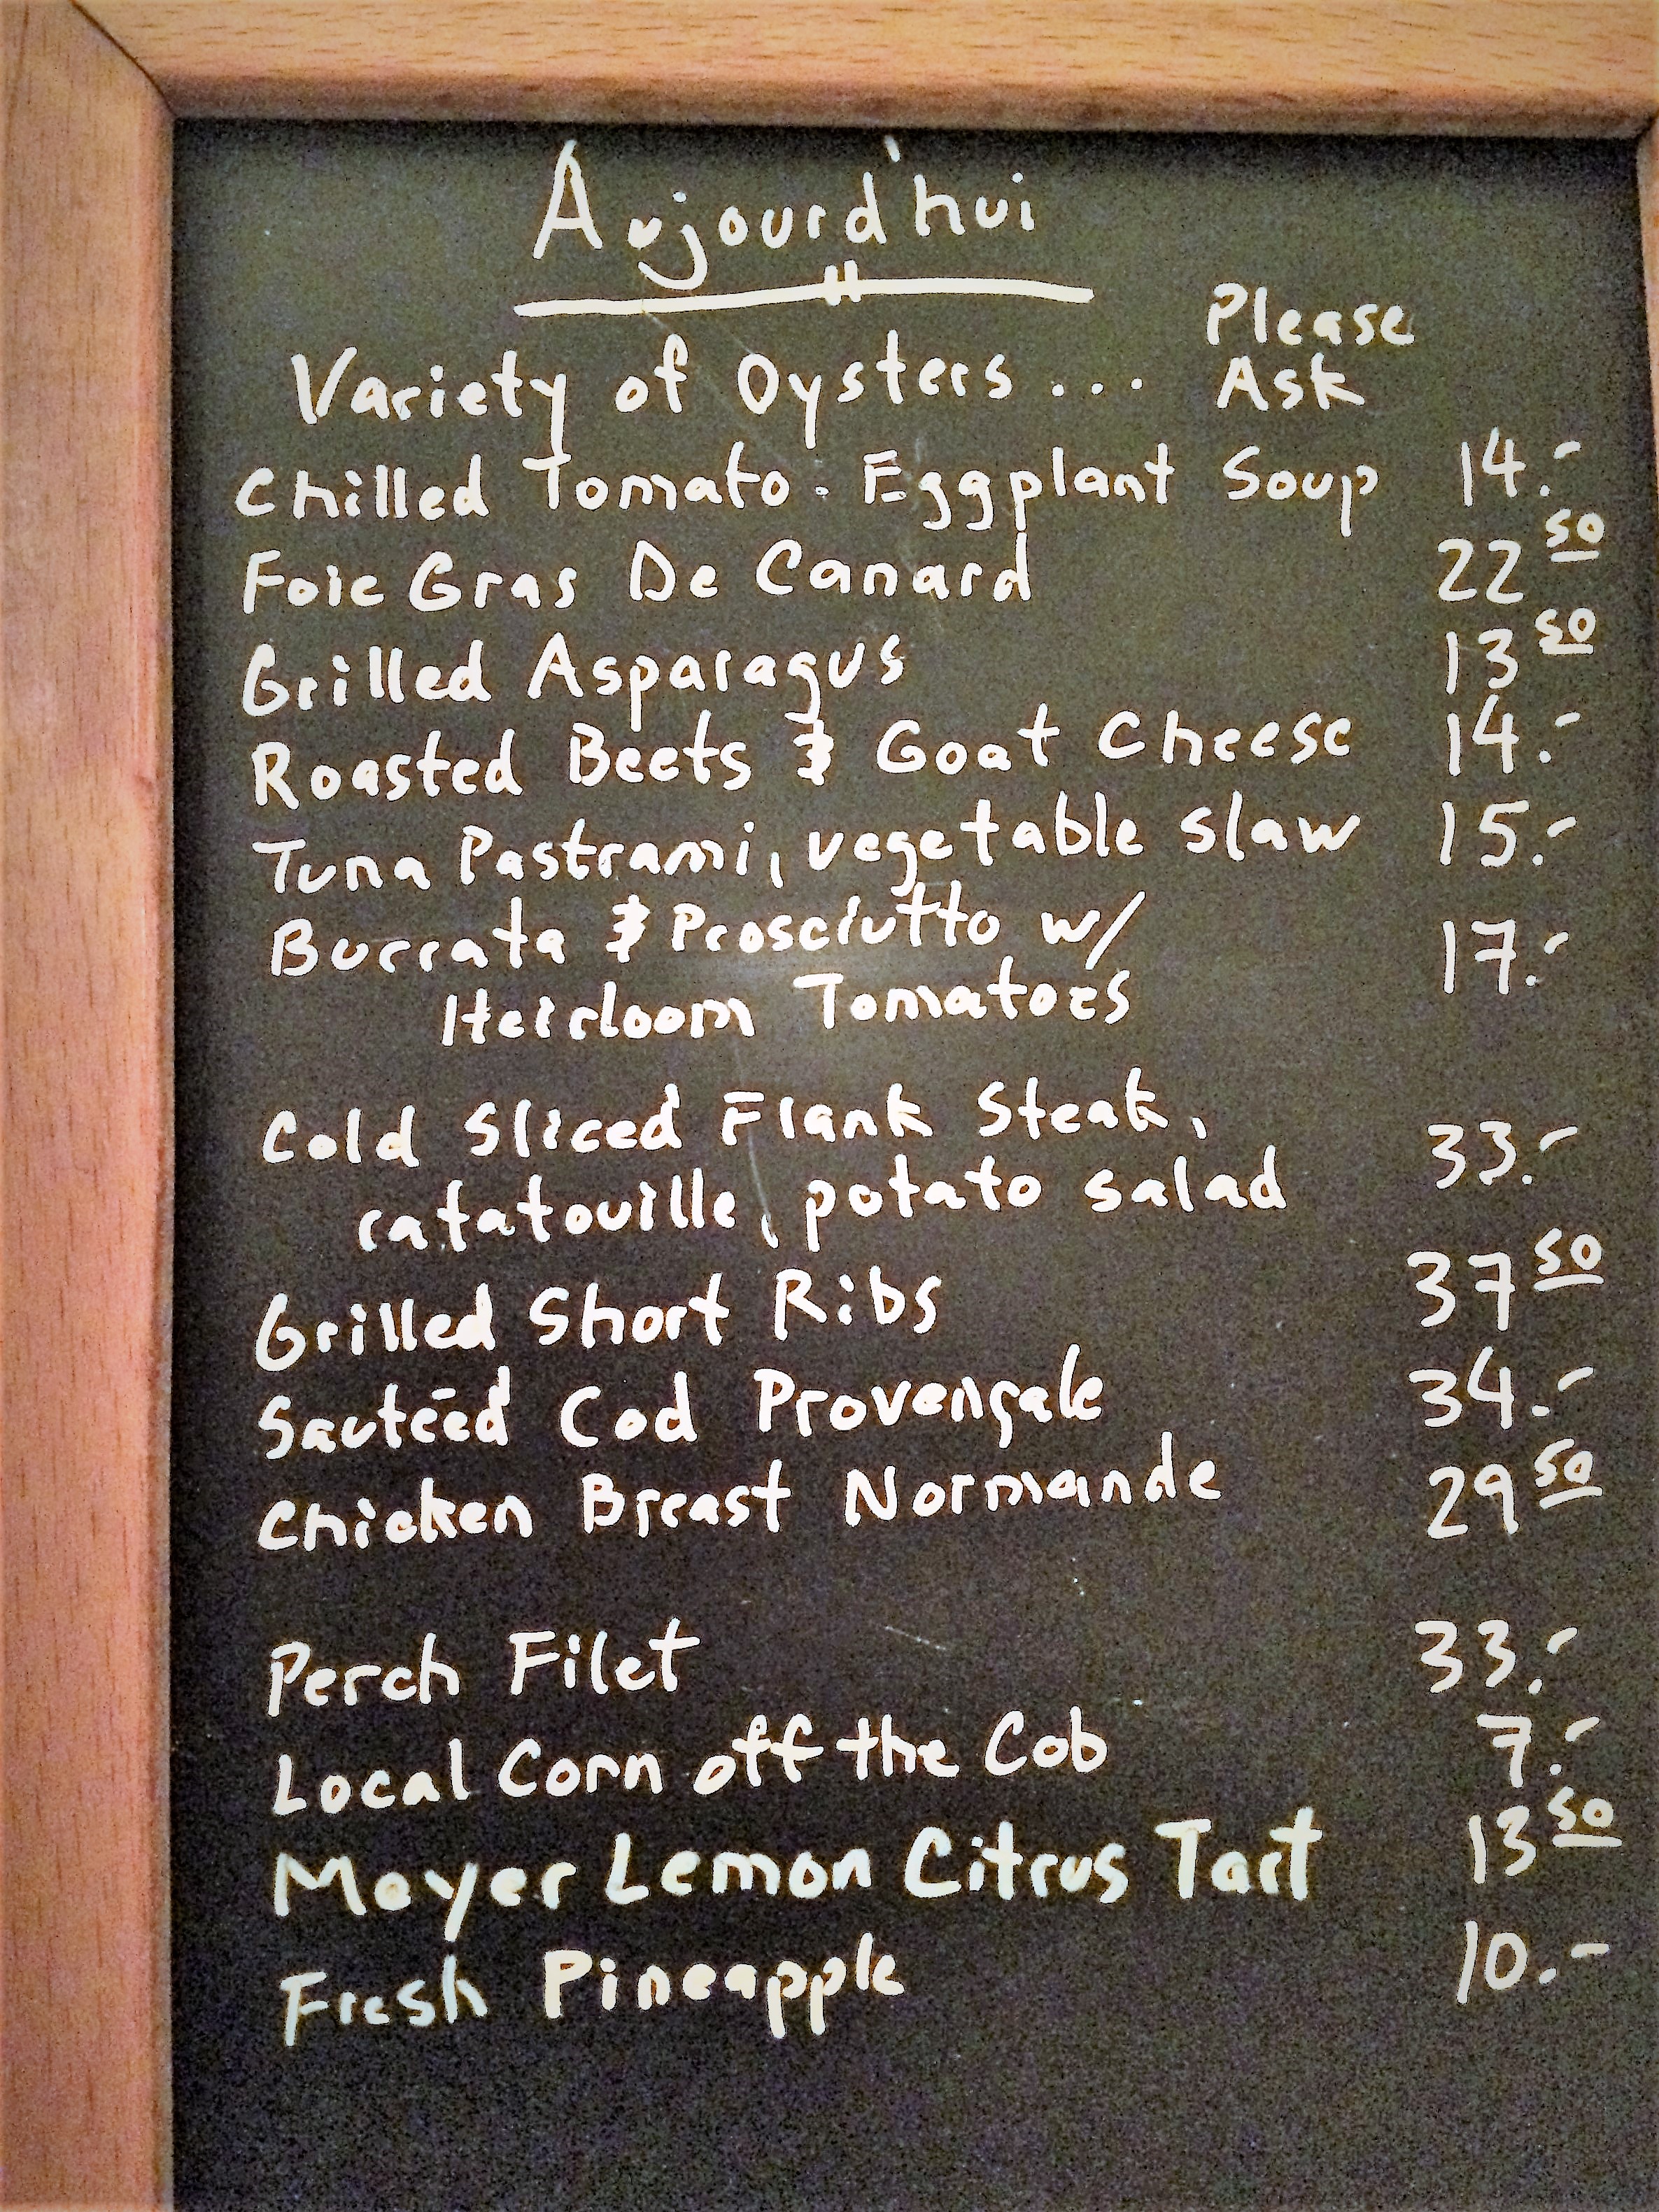 Aujourd'hui
Variety of Oysters ... Please Ask
Chilled Tomato - Eggplant Soup 14.-
Foie Gras De Canard 22 50
Grilled Asparagus 13 50
Roasted Beets & Goat Cheese 14.-
Tuna Pastrami, vegetable slaw 15.-
Burrata & Prosciutto w/ 17.-
Heirloom Tomatoes
Cold Sliced Flank Steak, 33.-
ratatouille, potato salad
Grilled Short Ribs 37 50
Sautéed Cod Provençale 34.-
Chicken Breast Normande 29 50
Perch Filet 33.-
Local Corn off the Cob 7.-
Meyer Lemon Citrus Tart 13 50
Fresh Pineapple 10.-